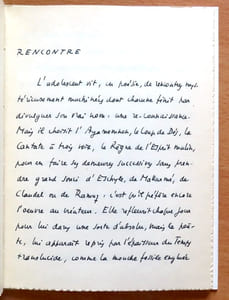 RENCONTRE
L'adolescent vit, en poésie, de rencontres mys-
térieusement machinées dont chacune finit par
divulguer son vrai nom : une re-connaissance.
Mais il choisit l'Agamemnon, le Coup de Dés, la
Cantate à trois voix, le Règne de l'Esprit malin,
pour en faire ses demeures successives sans pren-
dre grand souci d'Eschyle, de Mallarmé, de
Claudel ou de Ramuz : c'est qu'il préfère encore
l'œuvre au créateur. Elle refleurit chaque jour
pour lui dans une sorte d'absolu, mais le poè-
te, lui apparaît repris par l'épaisseur du Temps
translucide, comme la mouche fossile englué